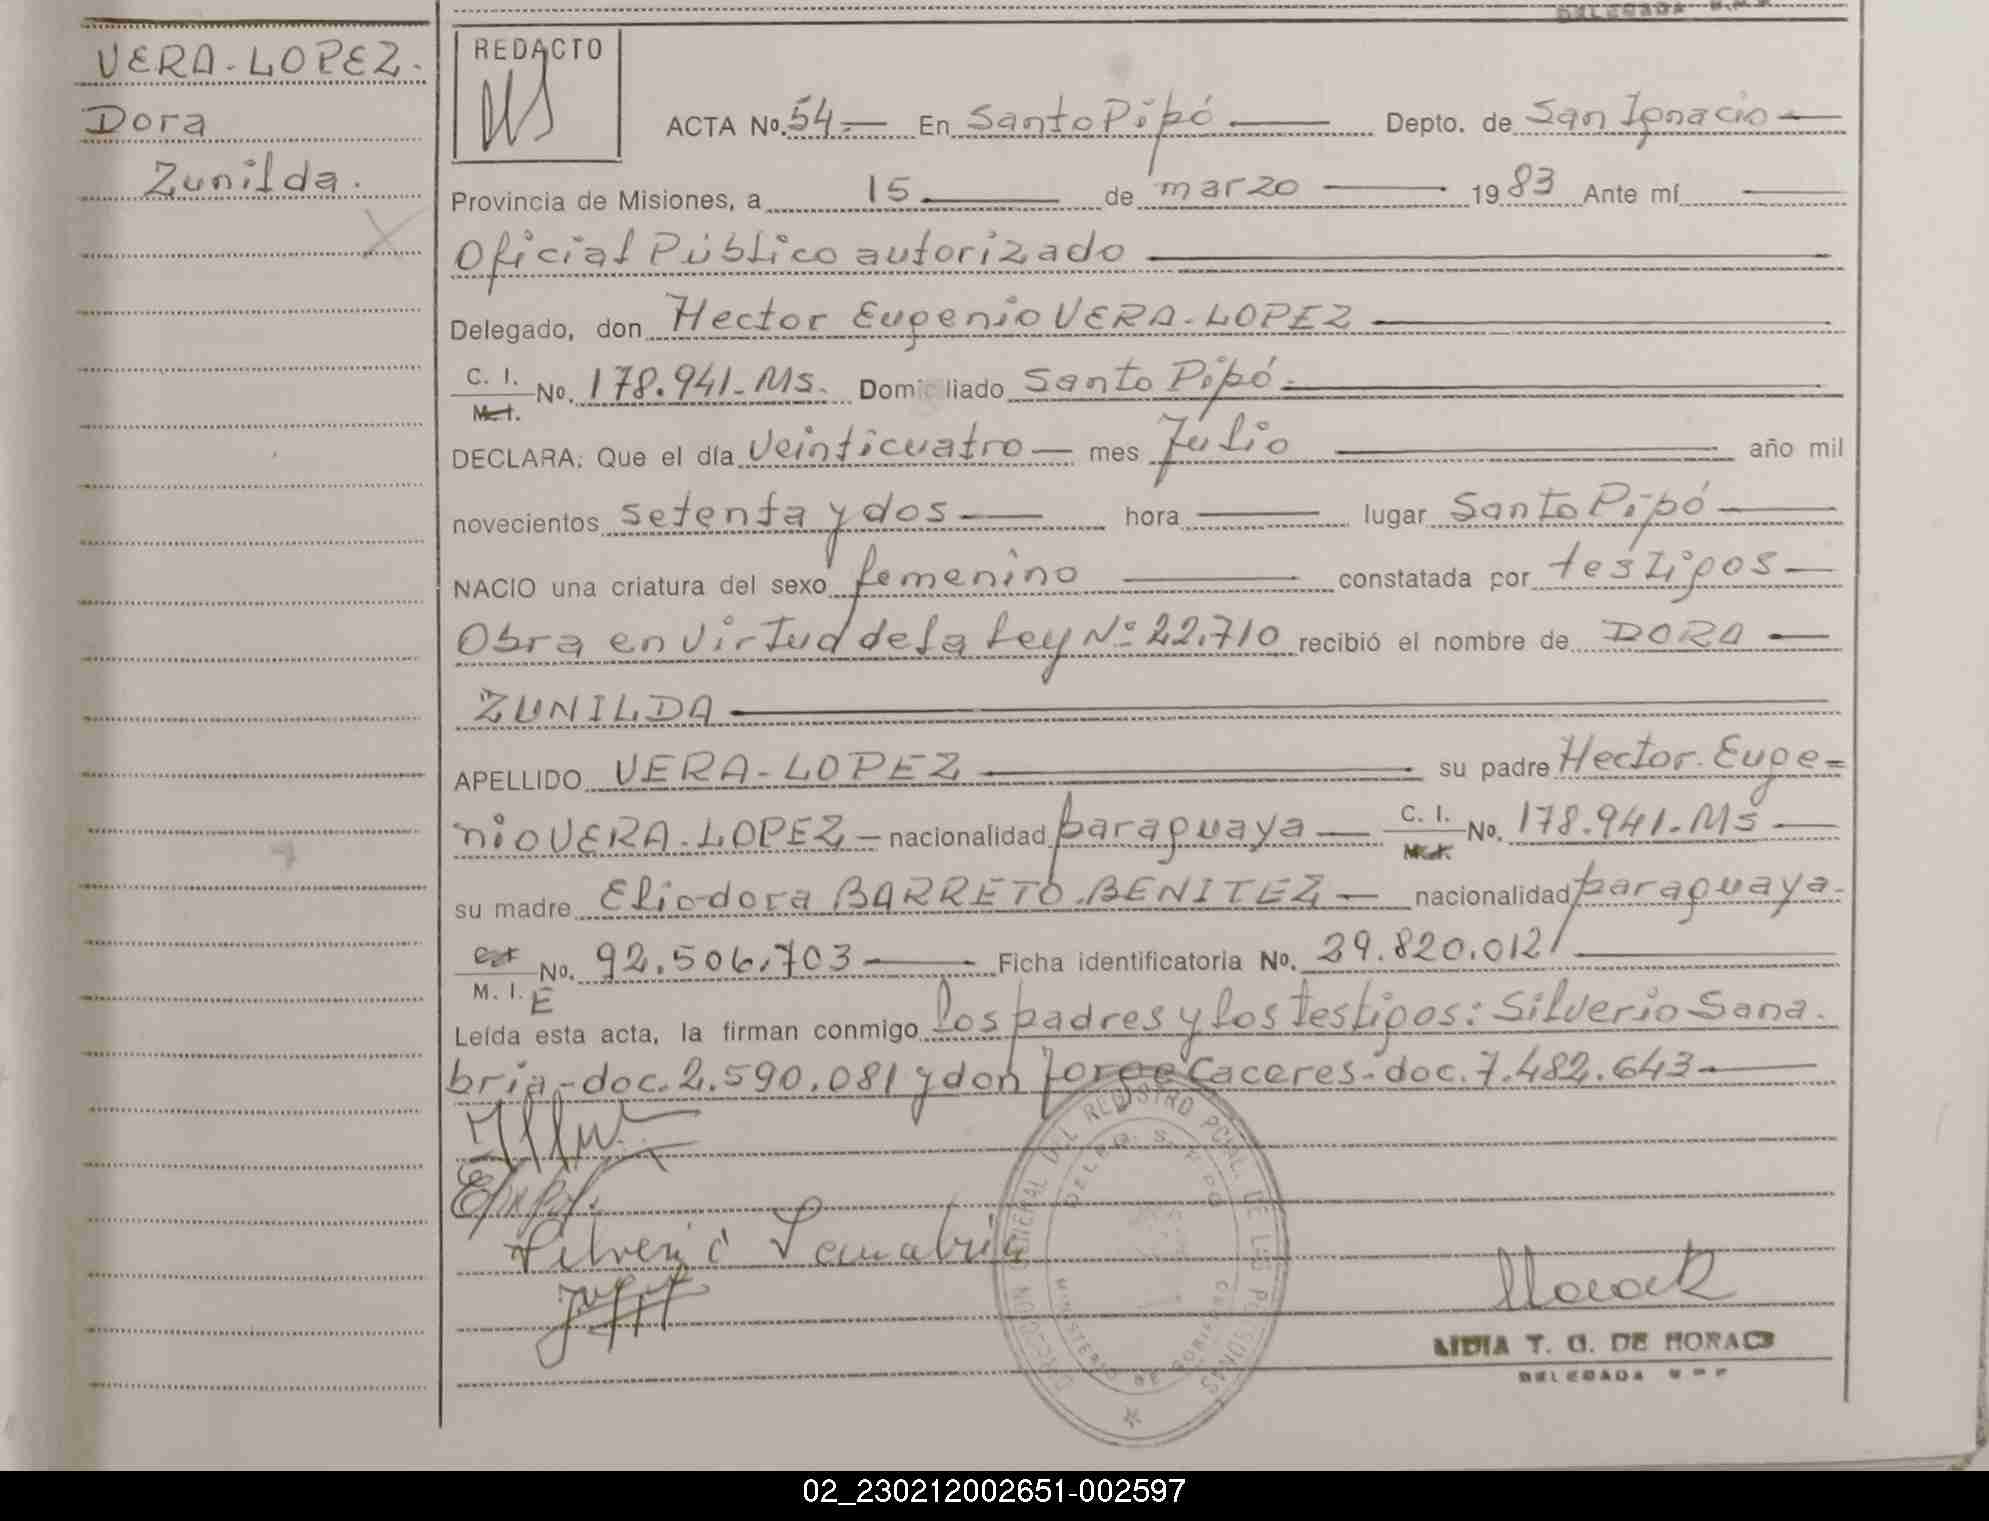 DELEGADA R.P.P
VERA-LOPEZ.
Dora
Zunilda.
REDACTO
ACTA No. 54 En Santo Pipó Depto. de San Ignacio
Provincia de Misiones, a 15 de marzo 1983 Ante mí
Oficial Público autorizado
Delegado, don Hector Eugenio VERA-LOPEZ
C. I. M.I. No. 178.941-Ms. Domiciliado Santo Pipó
DECLARA: Que el día veinticuatro mes Julio año mil
novecientos setenta y dos hora lugar Santo Pipó
NACIO una criatura del sexo femenino constatada por testigos
Obra en virtud de la Ley Nº 22.710 recibió el nombre de DORA
ZUNILDA
APELLIDO VERA-LOPEZ su padre Hector Euge=
nio VERA-LOPEZ nacionalidad paraguaya C. I. M.I. No. 178.941-Ms
su madre Eliodora BARRETO BENITEZ nacionalidad paraguaya.
C.I. M. I. E No. 92.506.703 Ficha identificatoria No. 29.820.012
Leída esta acta, la firman conmigo los padres y los testigos: Silverio Sana.
bria-doc. 2.590.081 y don Jorge Caceres-doc. 7.482.643
Silverio Sanabria
DIRECCION GENERAL DEL REGISTRO PCIAL. DE LAS PERSONAS
MINISTERIO DE GOBIERNO
LIDIA T. G. DE HORACK
DELEGADA R.P.P
02_230212002651-002597